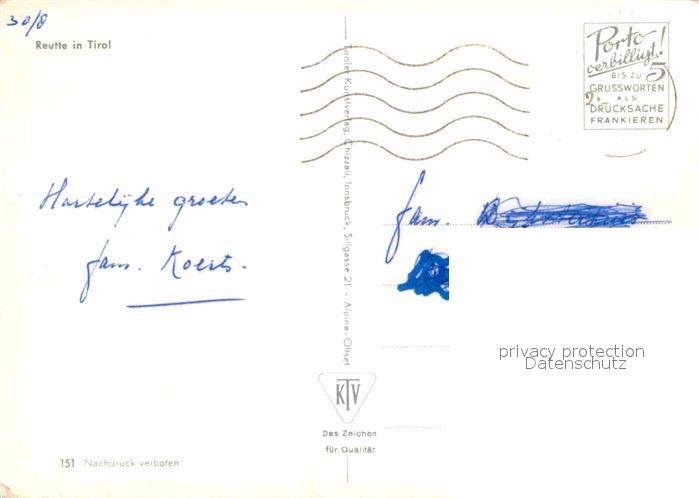 30/8
Reutte in Tirol
Porto
verbilligt!
BIS ZU 5
GRUSSWORTEN
ALS
DRUCKSACHE
FRANKIEREN
Tiroler Kunstverlag, Chizzali, Innsbruck, Sillgasse 21 - Alpina-Offset
Hartelijke groeten
fam. Koerts.
fam.
privacy protection
Datenschutz
KTV
Das Zeichen
für Qualität
151 Nachdruck verboten